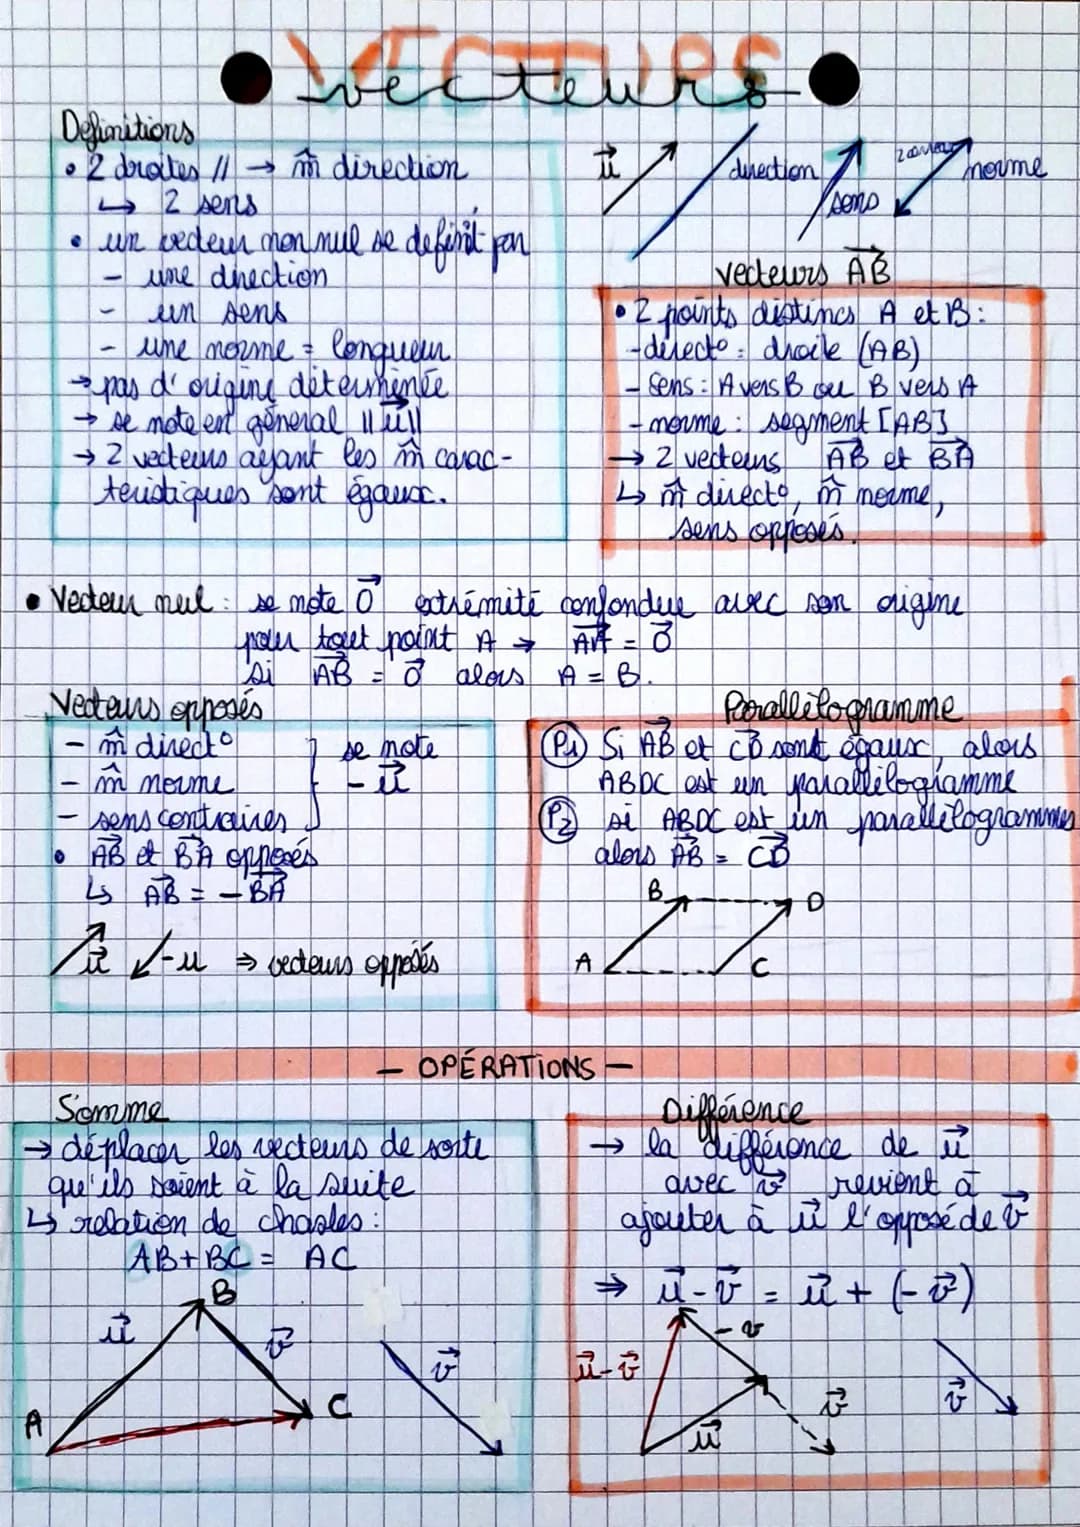 VECTEURS
vecteurs
Définitions
• 2 droites // → m̂ direction
↳ 2 sens
• un vecteur non nul se définit par
- une direction
- un sens
- une norme = longueur
→ pas d'origine déterminée
→ se note en général ||u⃗||
→ 2 vecteurs ayant les m̂ carac-
téristiques sont égaux.
u⃗
direction
sens
norme
vecteurs A⃗B⃗
• 2 points distincs A et B :
- direct° : droite (AB)
- sens : A vers B ou B vers A
- norme : segment [AB]
→ 2 vecteurs A⃗B⃗ et B⃗A⃗
↳ m̂ direct°, m̂ norme,
sens opposés.
• Vecteur nul : se note 0⃗ extrémité confondue avec son origine
pour tout point A → A⃗A⃗ = 0⃗
si A⃗B⃗ = 0⃗ alors A = B.
Vecteurs opposés
- m̂ direct°
- m̂ norme
- sens contraires
se note
- u⃗
• A⃗B⃗ et B⃗A⃗ opposés
↳ A⃗B⃗ = - B⃗A⃗
u⃗ -u ⇒ vecteurs opposés
Parallélogramme
P1 Si A⃗B⃗ et C⃗D⃗ sont égaux, alors
ABDC est un parallélogramme
P2 si ABDC est un parallélogrammes
alors A⃗B⃗ = C⃗D⃗
B D
A C
- OPÉRATIONS -
Somme
→ déplacer les vecteurs de sorte
qu'ils soient à la suite
↳ relation de chasles :
AB + BC = AC
B
u⃗
v⃗
A
C
v⃗
Différence
→ la différence de u⃗
avec v⃗ revient à
ajouter à u⃗ l'opposé de v⃗
⇒ u⃗ - v⃗ = u⃗ + (- v⃗)
- v
u⃗ - v⃗
u⃗
v⃗
v⃗